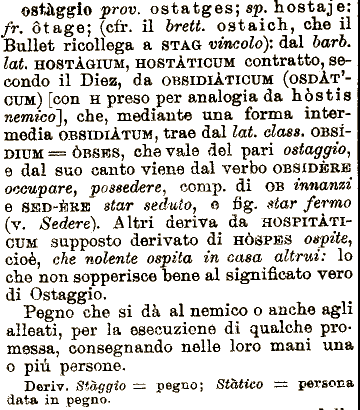 ostàggio prov. ostatges; sp. hostaje:
fr. ôtage; (cfr. il brett. ostaich, che il
Bullet ricollega a STAG vincolo): dal barb.
lat. HOSTÀGIUM, HOSTÀTICUM contratto, se-
condo il Diez, da OBSIDIÀTICUM (OSDÀT'-
CUM) [con H preso per analogia da hòstis
nemico], che, mediante una forma inter-
media OBSIDIÀTUM, trae dal lat. class. OBSÍ-
DIUM = ÒBSES, che vale del pari ostaggio,
e dal suo canto viene dal verbo OBSIDÈRE
occupare, possedere, comp. di OB innanzi
e SED-ÈRE star seduto, e fig. star fermo
(v. Sedere). Altri deriva da HOSPITÀTI-
CUM supposto derivato di HÒSPES ospite,
cioè, che nolente ospita in casa altrui: lo
che non sopperisce bene al significato vero
di Ostaggio.
Pegno che si dà al nemico o anche agli
alleati, per la esecuzione di qualche pro-
messa, consegnando nelle loro mani una
o più persone.
Deriv. Stàggio = pegno; Stàtico = persona
data in pegno.